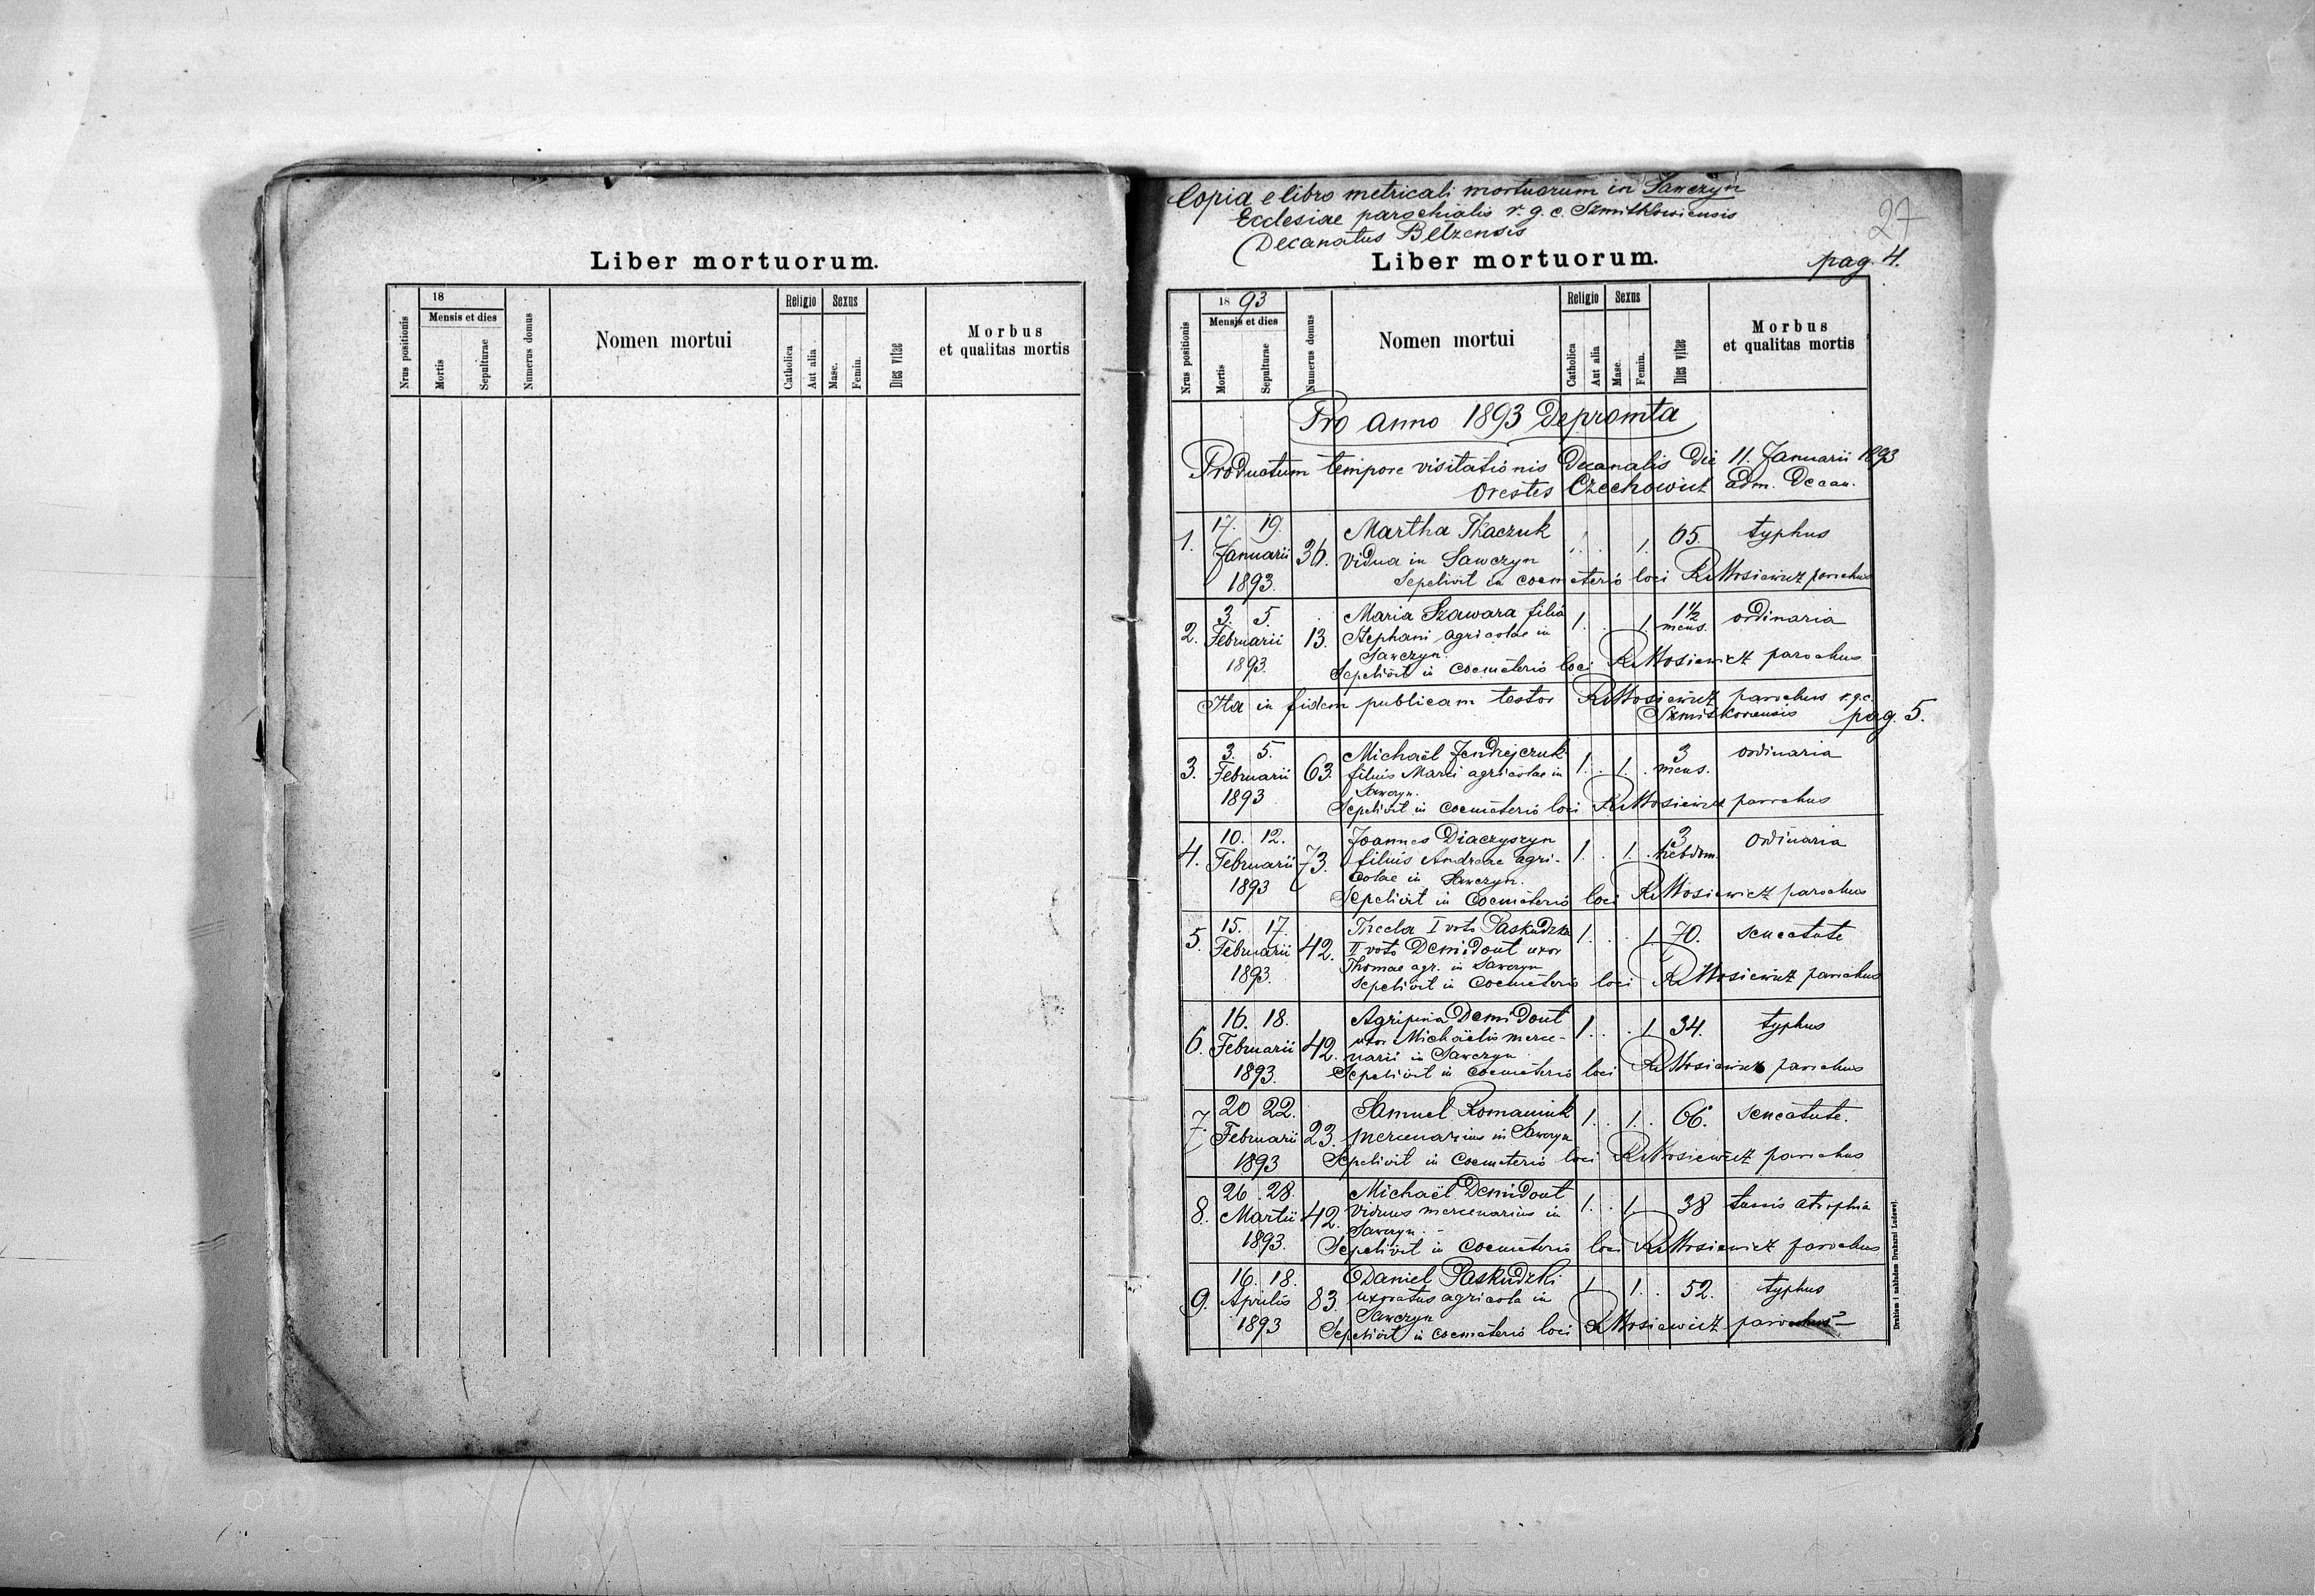 Liber mortuorum.
Nrus positionis
18
Mensis et dies
Mortis
Sepulturae
Numerus domus
Nomen mortui
Religio
Catholica
Aut alia
Sexus
Masc.
Femin.
Dies vitae
Morbus
et qualitas mortis
Copia e libro metricali mortuorum in Sawczyn
Ecclesiae parochialis r. g. c. Szmitkowiensis
Decanatus Belzensis
27
Liber mortuorum.
pag. 4.
Nrus positionis
18 93
Mensis et dies
Mortis
Sepulturae
Numerus domus
Nomen mortui
Religio
Catholica
Aut alia
Sexus
Masc.
Femin.
Dies vitae
Morbus
et qualitas mortis
Pro anno 1893 Depromta
Productum tempore visitationis Decanalis die 11. Januarii 1893
Orestes Czechowicz adm. Decan.
1. 17. 19. Januarii 1893. 36. Martha Tkaczuk 1. . . 1. 65. typhus
vidua in Sawczyn
Sepelivit in coemeterio loci parochus
2. 3. 5. Februarii 1893. 13. Maria Szawara filia 1. . . 1. 1½ mens. ordinaria
Stephani agricolae in
Sawczyn.
Sepelivit in coemeterio loci parochus
Ita in fidem publicam testor parochus r.g.c.
Szmitkoviensis pag. 5.
3. 3. 5. Februarii 1893 63. Michaël Jendrejczuk 1. . 1. . 3 mens. ordinaria
filius Marci agricolae in
Sawczyn.
Sepelivit in coemeterio loci parochus
4. 10. 12. Februarii 1893 73. Joannes Diaczyszyn 1. . 1. . 3 hebdom. ordinaria
filius Andreae agri-
colae in Sawczyn.
Sepelivit in Coemeterio loci parochus
5. 15. 17. Februarii 1893. 42. Thecla I voto Paskudzka 1. . . 1. 70. senectute
II voto Demidout uxor
Thomae agr. in Sawczyn
Sepelivit in Coemeterio loci parochus
6. 16. 18. Februarii 1893. 42. Agripina Demidout 1. . . 1. 34. typhus
uxor Michaëlis merce-
narii in Sawczyn
Sepelivit in coemeterio loci parochus
7. 20 22. Februarii 1893 23. Samuel Romaniuk 1. . 1. . 66. senectute.
mercenarius in Sawczyn
Sepelivit in Coemeterio loci parochus
8. 26. 28. Martii 1893. 42. Michaël Demidout 1. . 1. 38 tussis atrophia
viduus mercenarius in
Sawczyn.
Sepelivit in Coemeterio loci parochus
9. 16. 18. Aprilis 1893 83. Daniel Paskudzki 1. 1. . 52. typhus
uxoratus agricola in
Sawczyn
Sepelivit in coemeterio loci parochus
Drukiem i nakładem Drukarni Ludowej.